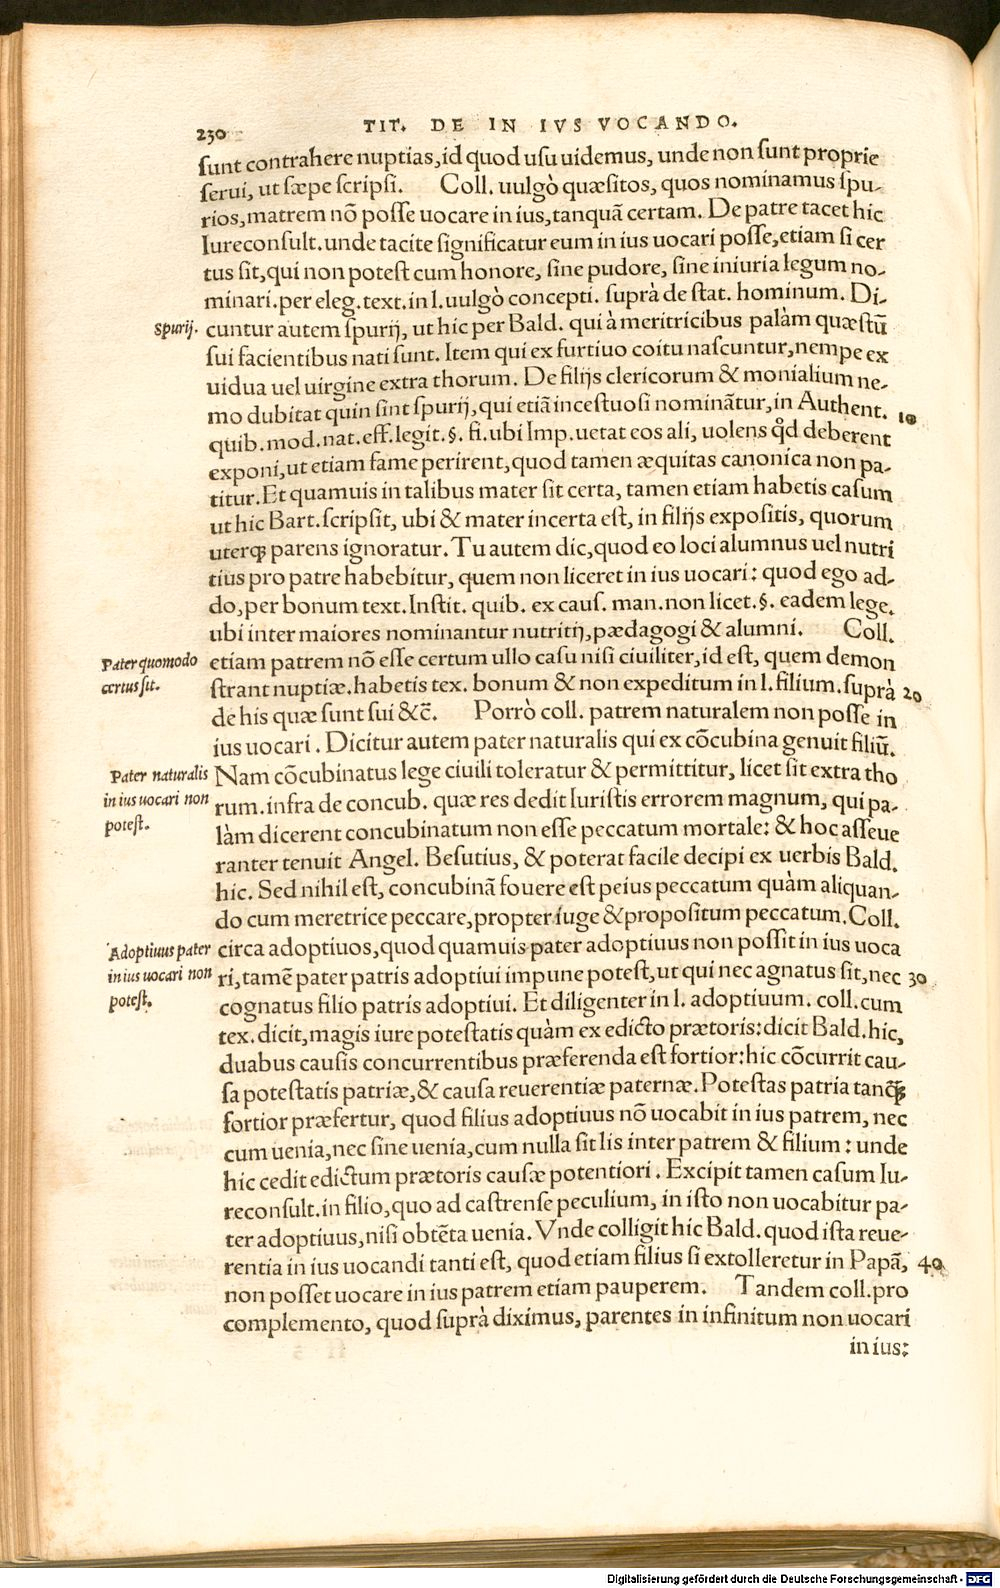 230
TIT. DE IN IVS VOCANDO.
sunt contrahere nuptias, id quod usu uidemus, unde non sunt proprie
serui, ut sæpe scripsi. Coll. uulgò quæsitos, quos nominamus spu-
rios, matrem nō posse uocare in ius, tanquā certam. De patre tacet hic
Iureconsult. unde tacite significatur eum in ius uocari posse, etiam si cer
tus sit, qui non potest cum honore, sine pudore, sine iniuria legum no-
minari. per eleg. text. in l. uulgò concepti. suprà de stat. hominum. Di-
Spurij.
cuntur autem spurij, ut hic per Bald. qui à meritricibus palàm quæstū
sui facientibus nati sunt. Item qui ex furtiuo coitu nascuntur, nempe ex
uidua uel uirgine extra thorum. De filijs clericorum & monialium ne-
mo dubitat quin sint spurij, qui etiā incestuosi nominātur, in Authent.
10
quib. mod. nat. eff. legit. §. fi. ubi Imp. uetat eos ali, uolens qđ deberent
exponi, ut etiam fame perirent, quod tamen æquitas canonica non pa-
titur. Et quamuis in talibus mater sit certa, tamen etiam habetis casum
ut hic Bart. scripsit, ubi & mater incerta est, in filijs expositis, quorum
uterqꝫ parens ignoratur. Tu autem dic, quod eo loci alumnus uel nutri
tius pro patre habebitur, quem non liceret in ius uocari: quod ego ad-
do, per bonum text. Instit. quib. ex caus. man. non licet. §. eadem lege.
ubi inter maiores nominantur nutritij, pædagogi & alumni. Coll.
Pater quomodo
certus sit.
etiam patrem nō esse certum ullo casu nisi ciuiliter, id est, quem demon
strant nuptiæ. habetis tex. bonum & non expeditum in l. filium. suprà
20
de his quæ sunt sui &c̄. Porrò coll. patrem naturalem non posse in
ius uocari. Dicitur autem pater naturalis qui ex cōcubina genuit filiū.
Pater naturalis
in ius uocari non
potest.
Nam cōcubinatus lege ciuili toleratur & permittitur, licet sit extra tho
rum. infra de concub. quæ res dedit Iuristis errorem magnum, qui pa-
làm dicerent concubinatum non esse peccatum mortale: & hoc asseue
ranter tenuit Angel. Besutius, & poterat facile decipi ex uerbis Bald.
hic. Sed nihil est, concubinā fouere est peius peccatum quàm aliquan-
do cum meretrice peccare, propter iuge & propositum peccatum. Coll.
Adoptiuus pater
in ius uocari non
potest.
circa adoptiuos, quod quamuis pater adoptiuus non possit in ius uoca
ri, tamē pater patris adoptiui impune potest, ut qui nec agnatus sit, nec
30
cognatus filio patris adoptiui. Et diligenter in l. adoptiuum. coll. cum
tex. dicit, magis iure potestatis quàm ex edicto prætoris: dicit Bald. hic,
duabus causis concurrentibus præferenda est fortior: hic cōcurrit cau-
sa potestatis patriæ, & causa reuerentiæ paternæ. Potestas patria tanq̃ꝫ
fortior præfertur, quod filius adoptiuus nō uocabit in ius patrem, nec
cum uenia, nec sine uenia, cum nulla sit lis inter patrem & filium: unde
hic cedit edictum prætoris causæ potentiori. Excipit tamen casum Iu-
reconsult. in filio, quo ad castrense peculium, in isto non uocabitur pa-
ter adoptiuus, nisi obtēta uenia. Vnde colligit hic Bald. quod ista reue-
rentia in ius uocandi tanti est, quod etiam filius si extolleretur in Papā,
40
non posset uocare in ius patrem etiam pauperem. Tandem coll. pro
complemento, quod suprà diximus, parentes in infinitum non uocari
in ius:
Digitalisierung gefördert durch die Deutsche Forschungsgemeinschaft - DFG